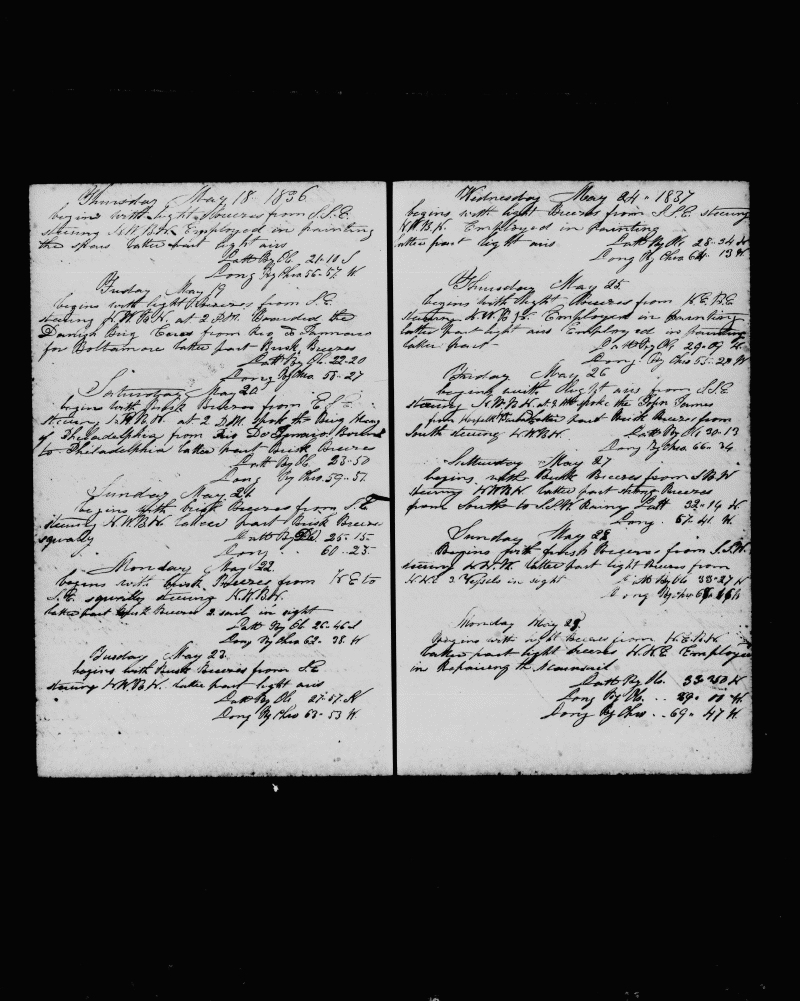 Thursday May 18 1836
begins with light Breezes from S.S.E.
steering N.W.B.N. Employed in painting
the spars latter part light airs
Latt By Ob. 21-10 S
Long By Chro 56-57 W
Friday May 19
begins with light Breezes from S.E.
steering N.W.B.N. at 2 P.M. Boarded the
Danish Brig Ceres from Rio
for Boltamore latter part Brisk Breezes
Latt By Ob. 22-20
Long By Chro. 58-27
Saturday May 20
begins with Brisk Breezes from E.S.E.
steering N.W.B.N. at 2 P.M. spok the Brig
of Philadelphia from Rio Bound
to Philadelphia latter part Brisk Breezes
Latt By Ob 23-50
Long By Chro. 59-57
Sunday May 21
begins with brisk Breezes from S.E.
steering N.W.B.N. latter part Brisk Breezes
squally Latt By Ob. 25-15-
Long 60-23-
Monday May 22
begins with brisk Breezes from N.E to
S.E. squally steering N.W.B.N.
latter part Brisk Breezes 2 sail in sight
Latt By Ob 26-46
Long By Chro 62-38 W
Tuesday May 23
begins with Brisk Breezes from S.E
steering N.W.B.N. latter part light airs
Latt By Ob 27-57 N
Long By Chro 63-53 W
Wednesday May 24 1837
begins with light Breezes from S.S.E steering
N.W.B.N. Employed in Painting
latter part light airs Latt By Ob 28-34 N
Long By Chro 64-13 W
Thursday May 25
begins with light Breezes from N.E.B.E
steering N.W.B.N. Employed in painting
latter part light airs Employed in painting
latter part- Latt By Ob 29-09 N
Long By Chro 65-28 W
Friday May 26
begins with light airs from S.S.E
steering N.W.B.N. at spoke the James
from latter part Brisk Breezes from
South steering N.W.B.N. Latt By Ob 30-13
Long By Chro 66-34
Saturday May 27
begins with Brisk Breezes from
steering N.W.B.N latter part strong Breezes
from South to S.S.W. Rainy Latt 32-14 N
Long 67-41 W.
Sunday May 28
Begins with fresh Breezes from S.S.W.
steering latter part light Breezes from
2 Vessels in sight Latt By Ob 33-27 N
Long By Chro
Monday May 29
begins with light Breezes from
latter part light breezes Employed
in Repairing the Mainsail
Latt By Ob. 33
Long By Ob.
Long By Chro .. 69-47 W.